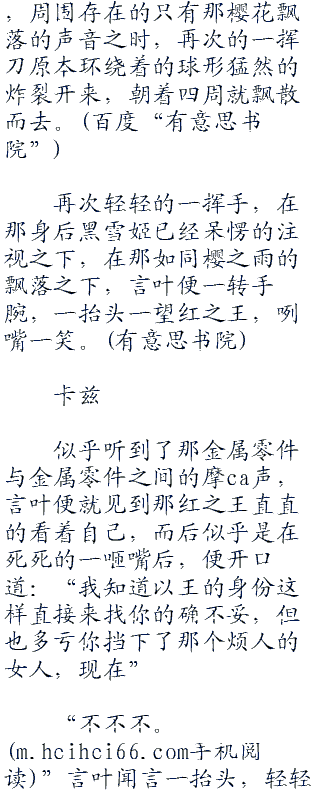 ，周围存在的只有那樱花飘
落的声音之时，再次的一挥
刀原本环绕着的球形猛然的
炸裂开来，朝着四周就飘散
而去。(百度“有意思书
院”)
再次轻轻的一挥手，在
那身后黑雪姬已经呆愣的注
视之下，在那如同樱之雨的
飘落之下，言叶便一转手
腕，一抬头一望红之王，咧
嘴一笑。(有意思书院)
卡兹
似乎听到了那金属零件
与金属零件之间的摩ca声，
言叶便就见到那红之王直直
的看着自己，而后似乎是在
死死的一咂嘴后，便开口
道：“我知道以王的身份这
样直接来找你的确不妥，但
也多亏你挡下了那个烦人的
女人，现在”
“不不不。
(m.hcihci66.com手机阅
读)”言叶闻言一抬头，轻轻